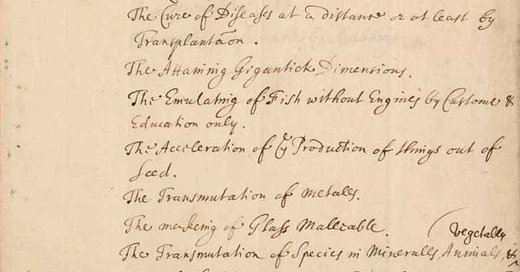 The Cure of Diseases at a distance or at least by
Transplantaõn.
The Attaining Gigantick Dimensions.
The Emulating of Fish without Engines by Custome &
Education only.
The Acceleration of yͤ Production of things out of
Seed.
The Transmutation of metalls.
The makeing of Glass Malleable.
Vegetalls
The Transmutation of Species in Mineralls, Animals, &